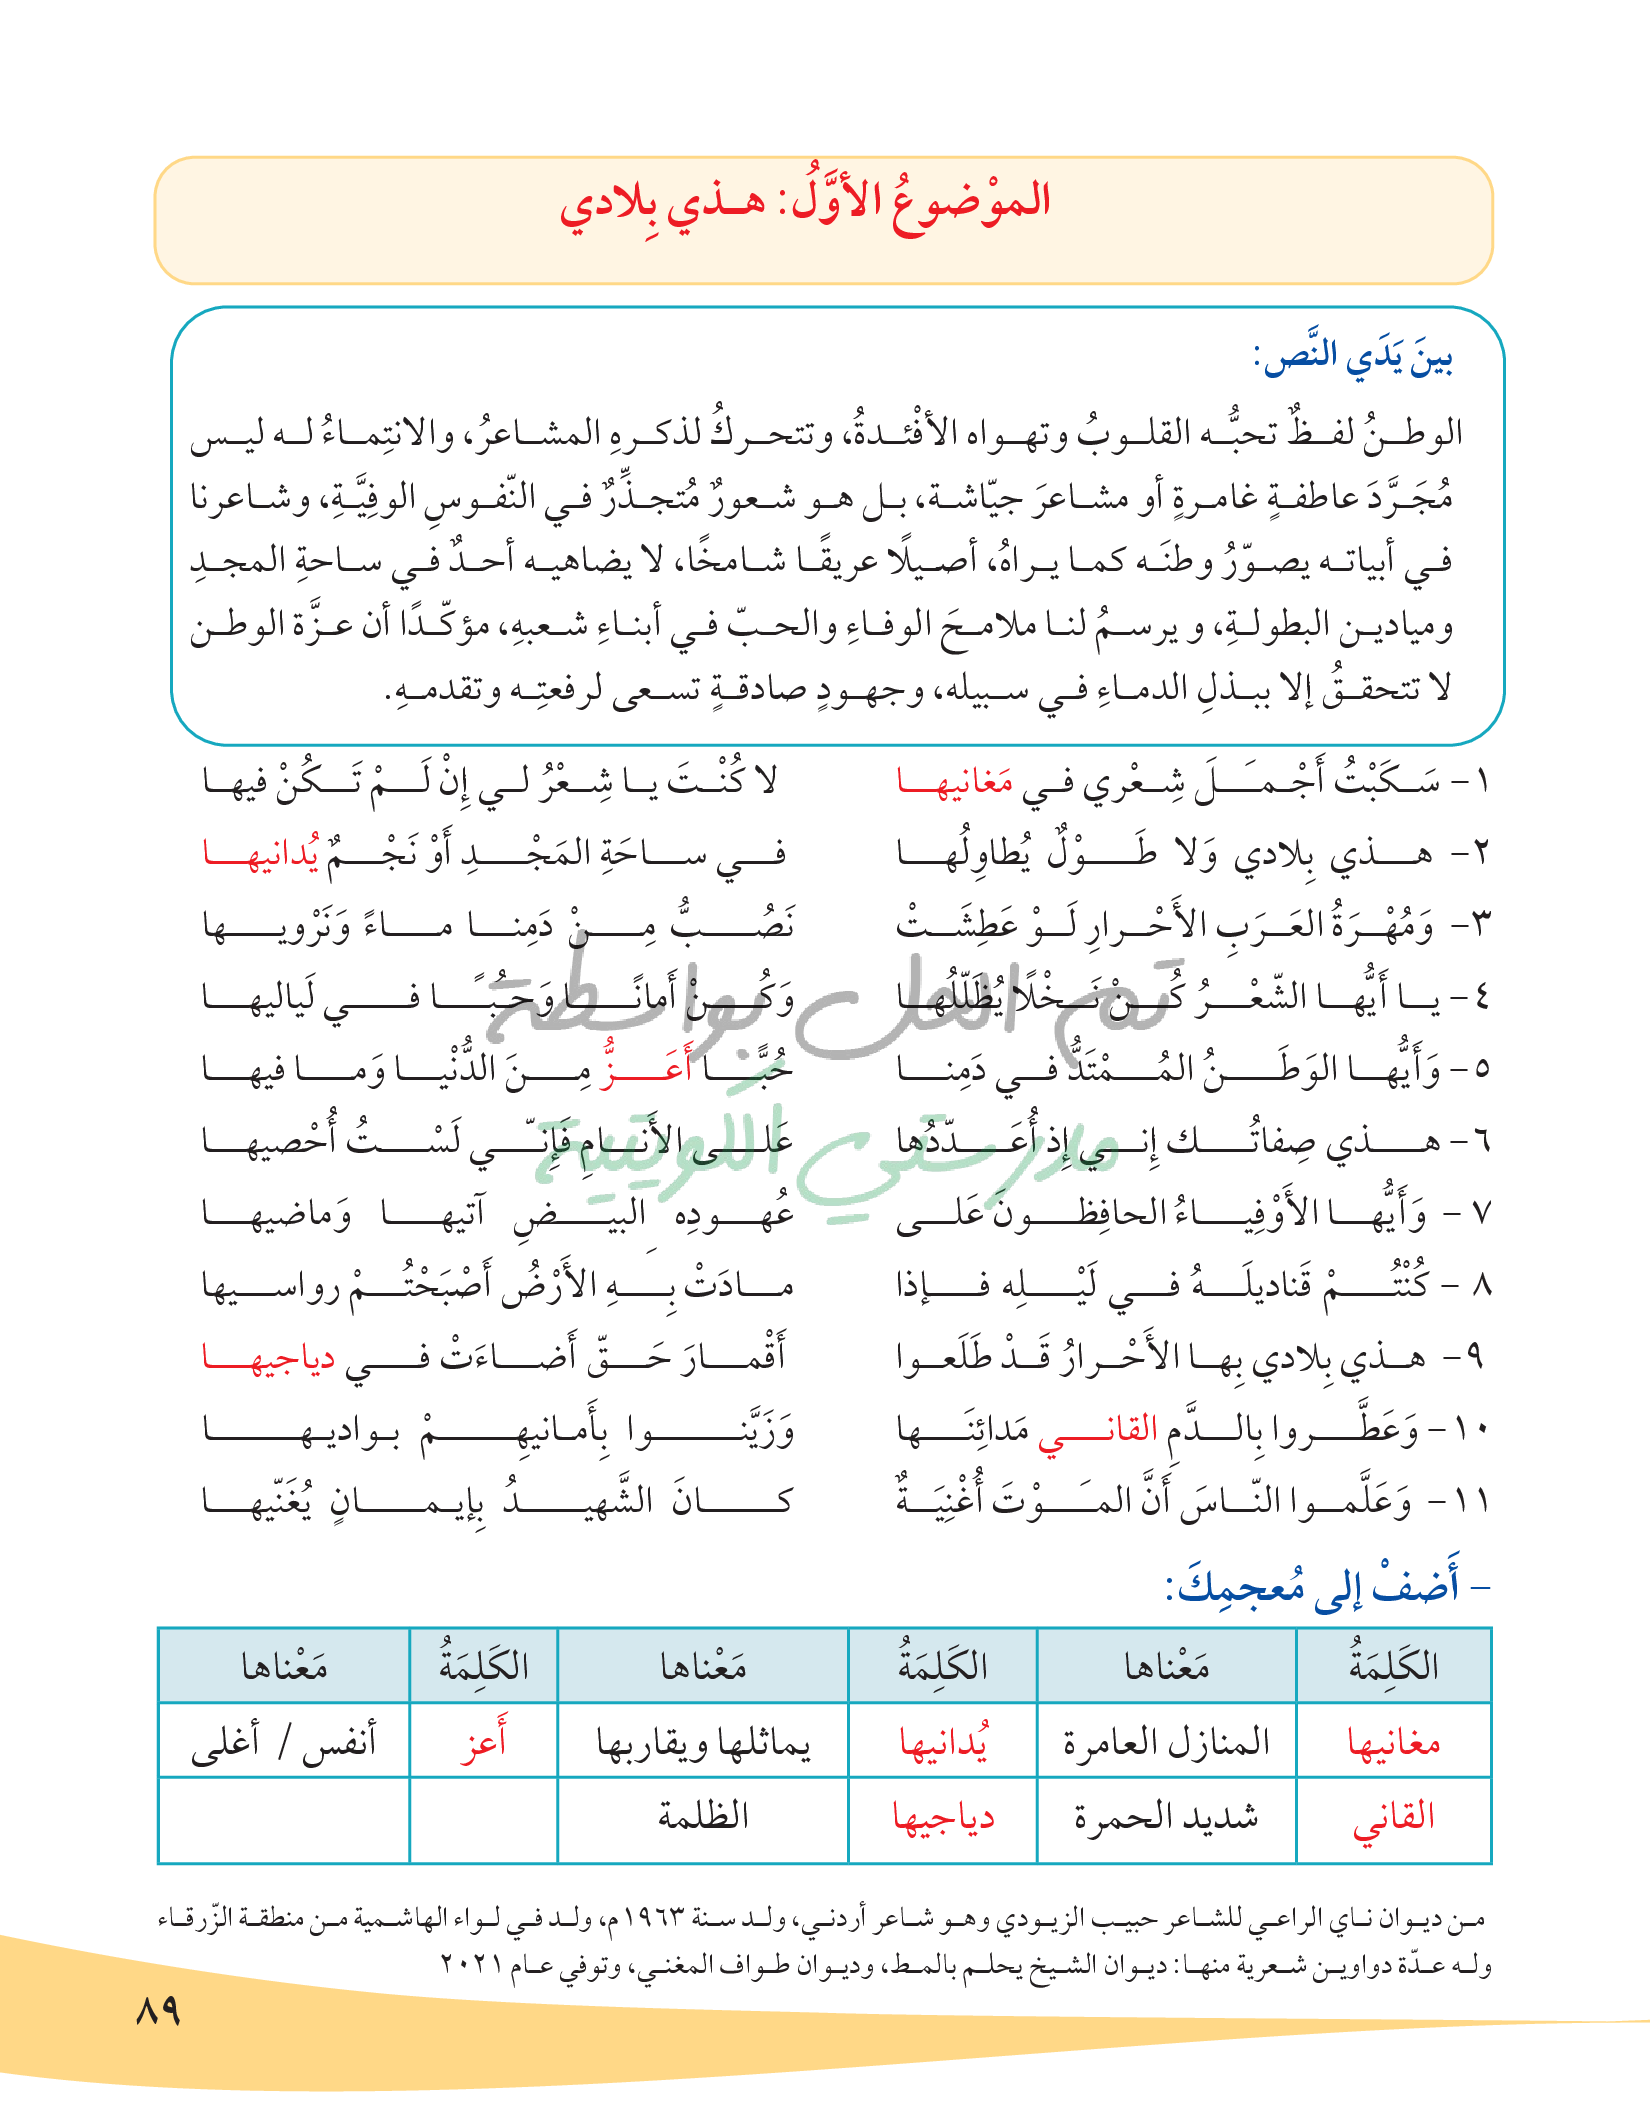 الموْضوعُ الأوَّلُ: هـذي بِلادي
بينَ يَدَي النَّص:
الوطنُ لفظٌ تحبُّه القلوبُ وتهواه الأفْئدةُ، وتتحركُ لذكرهِ المشاعرُ، والانتِماءُ له ليس
مُجَرَّدَ عاطفةٍ غامرةٍ أو مشاعرَ جيّاشة، بل هو شعورٌ مُتجذِّرٌ في النّفوسِ الوفِيَّةِ، وشاعرنا
في أبياته يصوّرُ وطنَه كما يراهُ، أصيلًا عريقًا شامخًا، لا يضاهيه أحدٌ في ساحةِ المجدِ
وميادين البطولةِ، ويرسمُ لنا ملامحَ الوفاءِ والحبّ في أبناءِ شعبهِ، مؤكّدًا أن عزَّة الوطن
لا تتحققُ إلا ببذلِ الدماءِ في سبيله، وجهودٍ صادقةٍ تسعى لرفعتِه وتقدمهِ.
١- سَكَبْتُ أَجْمَلَ شِعْري في مَغانيها لا كُنْتَ يا شِعْرُ لي إِنْ لَمْ تَكُنْ فيها
٢- هذي بِلادي وَلا طَوْلٌ يُطاوِلُها في ساحَةِ المَجْدِ أَوْ نَجْمٌ يُدانيها
٣- وَمُهْرَةُ العَرَبِ الأَحْرارِ لَوْ عَطِشَتْ نَصُبُّ مِنْ دَمِنا ماءً وَنَرْويها
٤- يا أَيُّها الشّعْرُ كُنْ نَخْلًا يُظَلّلُها وَكُنْ أَمانًا وَحُبًا في لَياليها
٥- وَأَيُّها الوَطَنُ المُمْتَدُّ في دَمِنا حُبًّا أَعَزُّ مِنَ الدُّنْيا وَما فيها
٦- هذي صِفاتُك إِني إِذ أُعَدّدُها عَلى الأَنامِ فَإِنّي لَسْتُ أُحْصيها
٧- وَأَيُّها الأَوْفِياءُ الحافِظونَ عَلى عُهودِه البيضِ آتيها وَماضيها
٨- كُنْتُمْ قَناديلَهُ في لَيْلِه فإذا مادَتْ بِهِ الأَرْضُ أَصْبَحْتُمْ رواسيها
٩- هذي بِلادي بِها الأَحْرارُ قَدْ طَلَعوا أَقْمارَ حَقّ أَضاءَتْ في دياجيها
١٠- وَعَطَّروا بِالدَّمِ القاني مَدائِنَها وَزَيَّنوا بِأَمانيهِمْ بواديها
١١- وَعَلَّموا النّاسَ أَنَّ المَوْتَ أُغْنِيَةٌ كانَ الشَّهيدُ بِإيمانٍ يُغَنّيها
تم الحل بواسطة
مدرستي الكويتية
- أَضفْ إلى مُعجمِكَ:
الكَلِمَةُ مَعْناها الكَلِمَةُ مَعْناها الكَلِمَةُ مَعْناها
مغانيها المنازل العامرة يُدانيها يماثلها ويقاربها أَعز أنفس / أغلى
القاني شديد الحمرة دياجيها الظلمة
من ديوان ناي الراعي للشاعر حبيب الزيودي وهو شاعر أردني، ولد سنة ١٩٦٣م، ولد في لواء الهاشمية من منطقة الزّرقاء
وله عدّة دواوين شعرية منها: ديوان الشيخ يحلم بالمط، وديوان طواف المغني، وتوفي عام ٢٠٢١
٨٩